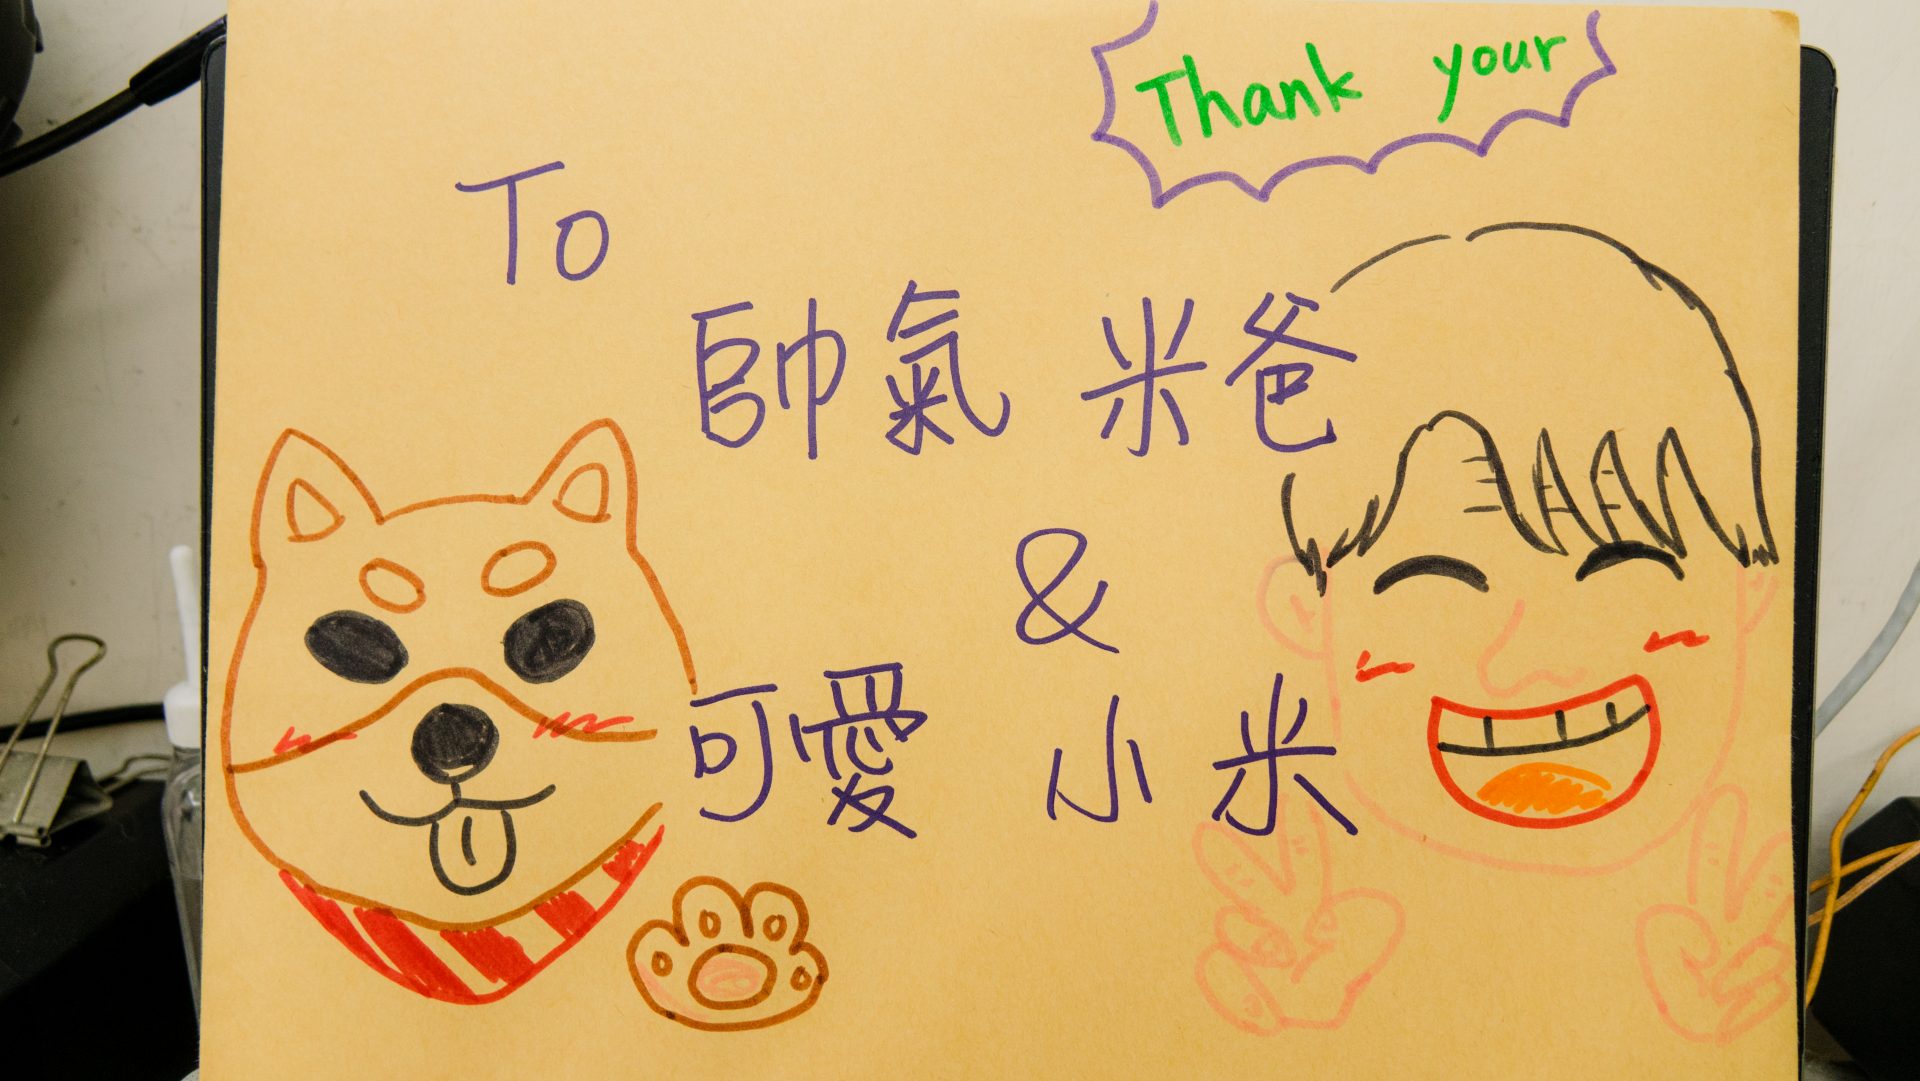 Thank your
To
帥氣 米爸
&
可愛 小米